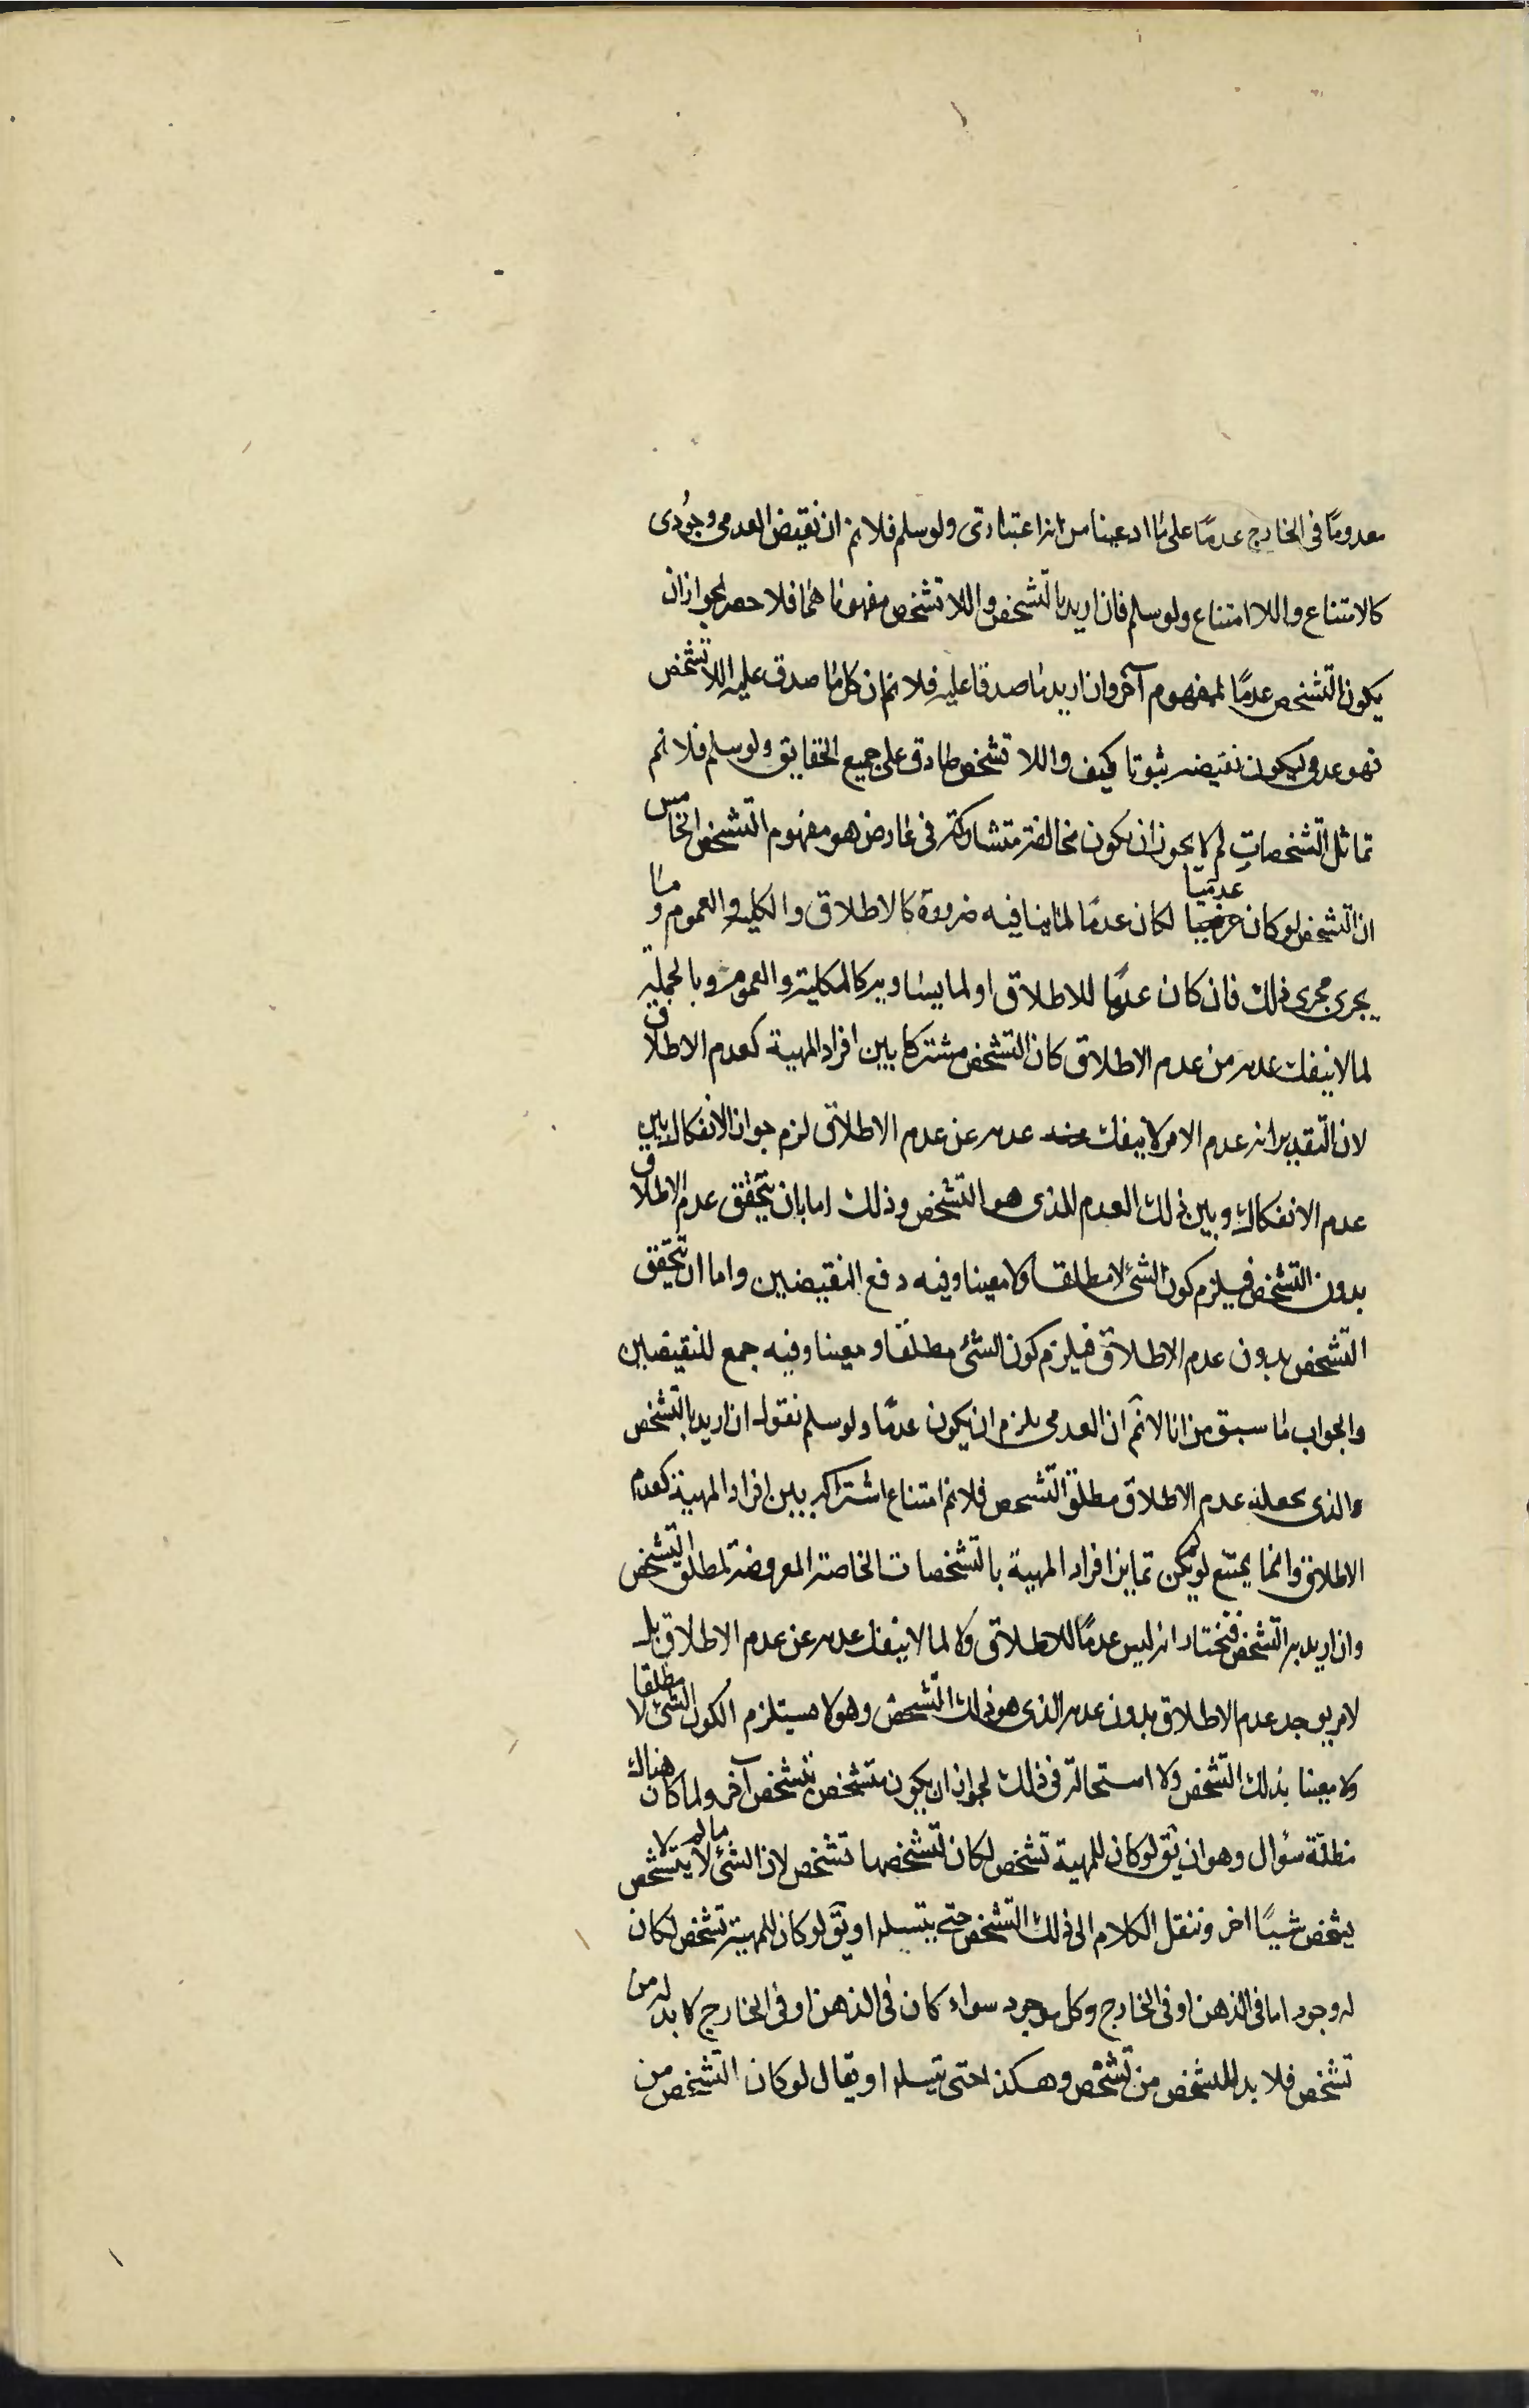 معدومًا فى الخارج عدمًا على ما ادعينا من انه اعتبارى ولو سلم فلا نم ان نقيض العدمى وجودى
كالامتناع واللا امتناع ولو سلم فان اريد بالتشخص واللا تشخص مفهوماهما فلا حصر لجواز ان
يكون التشخص عدمًا لمفهوم آخر وان اريد ما صدقا عليه فلا نم ان كل ما صدق عليه اللا تشخص
فهو عدمى ليكون نقيضه ثبوتا كيف واللا تشخص صادق على جميع الحقايق ولو سلم فلا نم
تماثل التشخصات لم لا يجوز ان يكون مخالفة متشاركة فى عارض هو مفهوم التشخص الخامس
ان التشخص لو كان عدميا لكان عدمًا لما ينافيه ضرورة كالاطلاق والكلية والعموم وما
يجرى مجرى ذلك فان كان عدمًا للاطلاق او لما يساويه كالكلية والعموم وبالجملة
لما لا ينفك عدمه من عدم الاطلاق كان التشخص مشتركا بين افراد المهية كعدم الاطلاق
لان التقدير انه عدم الامر لا ينفك عدمه عن عدم الاطلاق لزم جواز الانفكاك بين
عدم الانفكاك وبين ذلك العدم الذى هو التشخص وذلك اما بان يتحقق عدم الاطلاق
بدون التشخص فيلزم كون الشئ لا مطلقا ولا معينا وفيه دفع النقيضين واما ان يتحقق
التشخص بدون عدم الاطلاق فيلزم كون الشئ مطلقا ومعينا وفيه جمع للنقيضين
والجواب ما سبق من انا لا نم ان العدمى يلزم ان يكون عدمًا ولو سلم نقول ان اريد بالتشخص
والذى يجعله عدم الاطلاق مطلق التشخص فلا نم امتناع اشتراكه بين افراد المهية كعدم
الاطلاق وانما يمتنع لو لم يكن تمايز افراد المهية بالتشخصات الخاصة المعروضة لمطلق التشخص
وان اريد به التشخص فنختار انه ليس عدمًا للاطلاق ولا لما لا ينفك عدمه عن عدم الاطلاق بل
لامر يوجد عدم الاطلاق بدون عدمه الذى هو ذلك التشخص وهو لا يستلزم الكون الشئ لا مطلقا
ولا معينا بذلك التشخص ولا استحالة فى ذلك لجواز ان يكون متشخص بتشخص آخر ولما كان هناك
مظنة سؤال وهو ان يق لو كان للمهية تشخص لكان لتشخصها تشخص لان الشئ ما لم يتشخص لا
يشخص شيئًا اخر وننقل الكلام الى ذلك التشخص حتى يتسلسل او يق لو كان للمهية تشخص لكان
له وجود اما فى الذهن او فى الخارج وكل موجود سواء كان فى الذهن او فى الخارج لا بد له من
تشخص فلا بد للتشخص من تشخص وهكذا حتى يتسلسل او يقال لو كان التشخص من